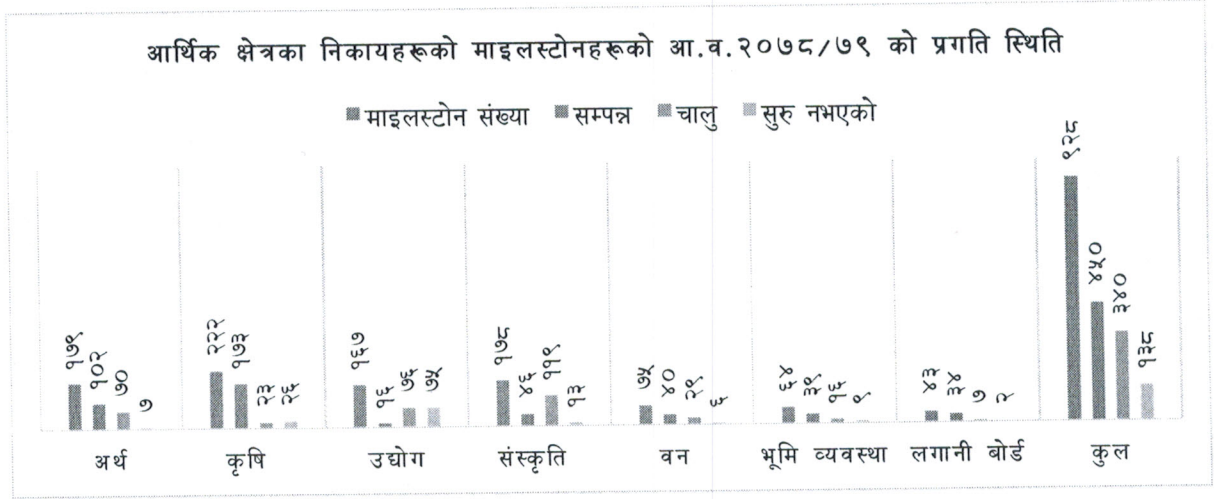 आर्थिक क्षेत्रका निकायहरूको माइलस्टोनहरूको आ.व.२०७८/७९ को प्रगति स्थिति
माइलस्टोन संख्या सम्पन्न चालु सुरु नभएको
१७९ १०२ ७० ७
२२२ १७३ २३ २६
१६७ १६ ७६ ७५
१७८ ४६ ११९ १३
७५ ४० २९ ६
६४ ३९ १६ ९
४३ ३४ ७ २
९२८ ४५० ३४० १३८
अर्थ कृषि उद्योग संस्कृति वन भूमि व्यवस्था लगानी बोर्ड कुल